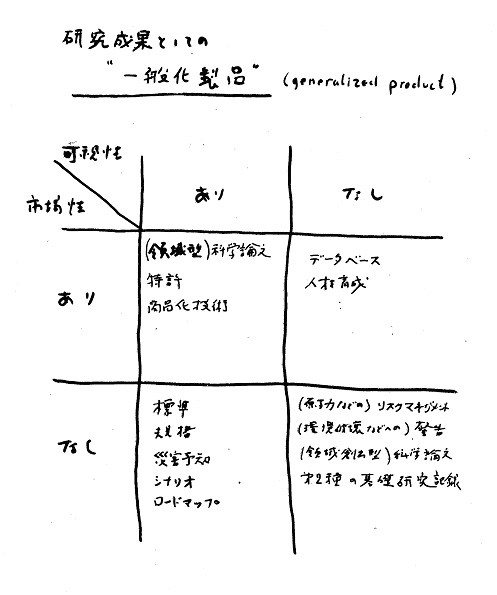 研究成果としての
"一般化製品" (generalized product)
可視性
市場性
あり
なし
あり
(領域型)科学論文
特許
商品化技術
データベース
人材育成
なし
標準
規格
災害予知
シナリオ
ロードマップ
(原子力などの) リスクマネジメント
(環境破壊などへの) 警告
(領域創出型) 科学論文
第2種の基礎研究記録